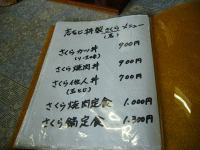 志もじ 特製 さくら メニュー
(馬)
さくら カツ丼 900円
(ソースかつ)
さくら 焼肉丼 900円
さくら 他人丼 700円
(玉とじ)
さくら 焼肉定食 1.000円
さくら 鍋定食 1.300円